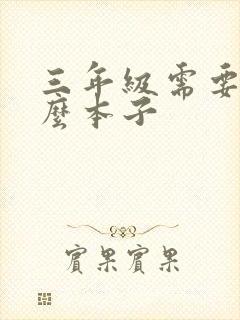 三年級需要
麼本子
實果實果